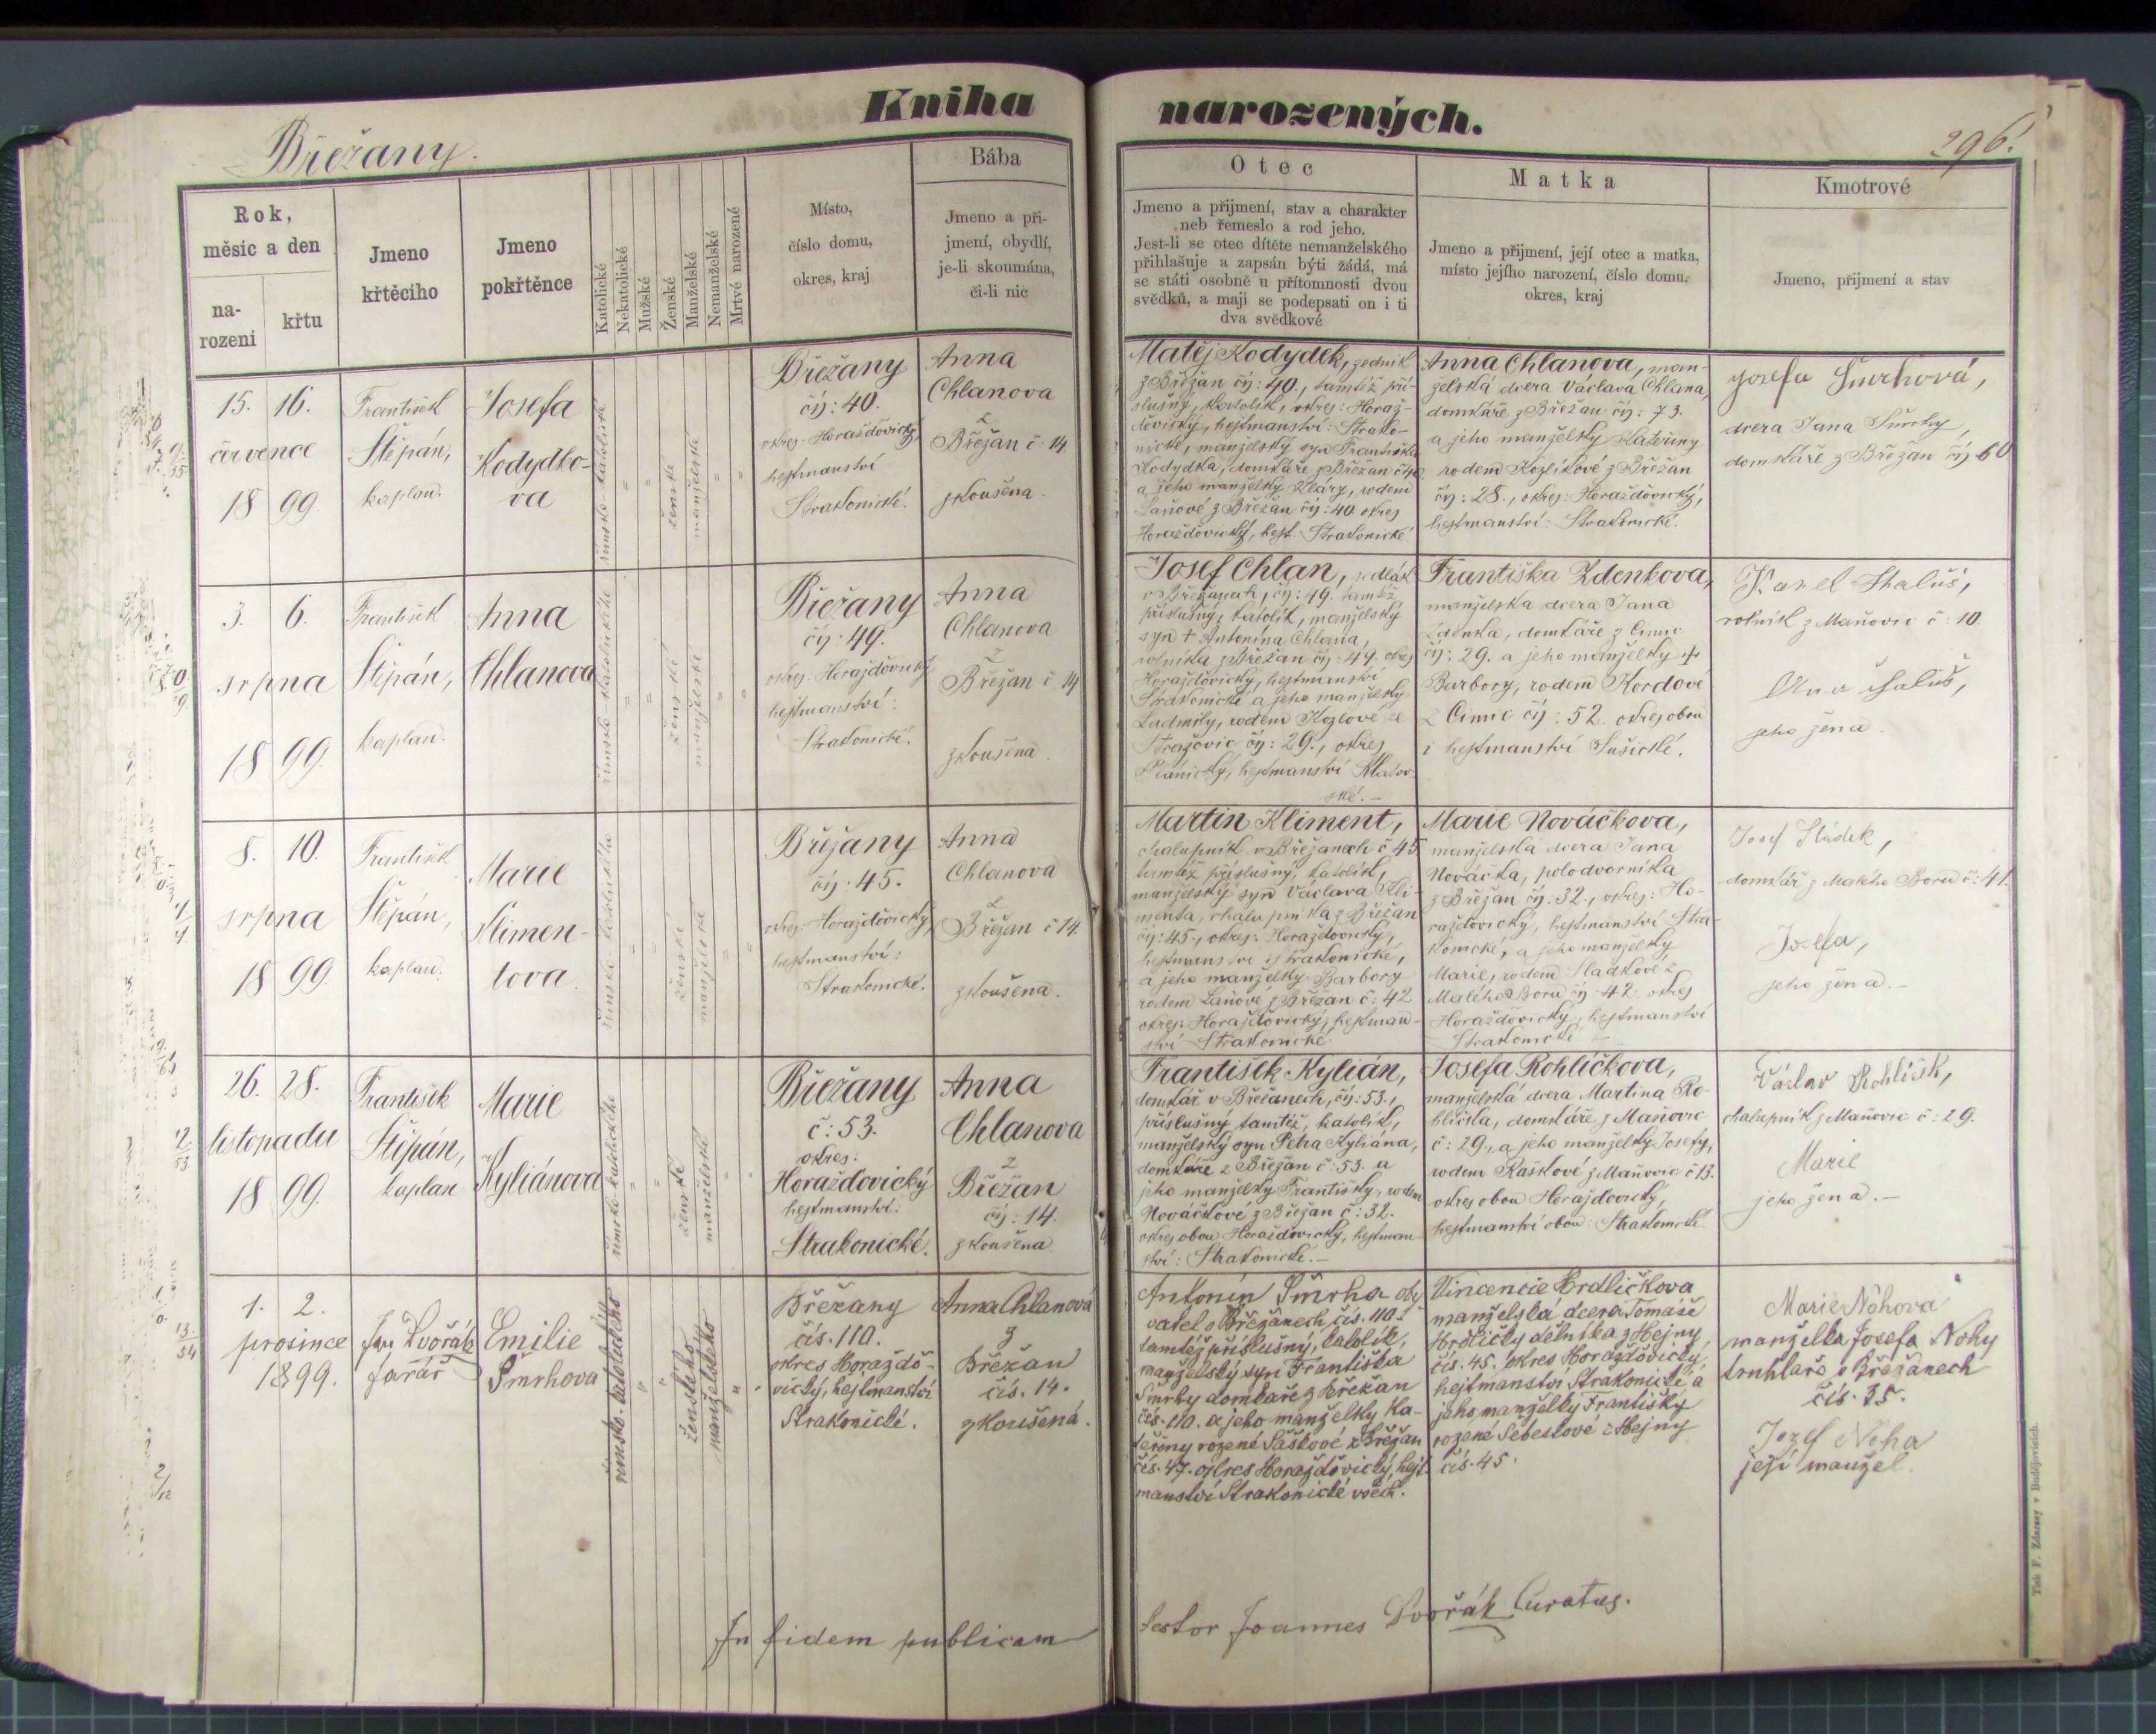 Kniha narozených.
Břežany.
296.
Rok,
měsic a den
na-
rozeni
křtu
Jmeno
křtěciho
Jmeno
pokřtěnce
Katolické
Nekatolické
Mužské
Ženské
Manželské
Nemanželské
Mrtvé narozené
Místo,
číslo domu,
okres, kraj
Bába
Jmeno a při-
jmení, obydlí,
je-li skoumána,
či-li nic
Otec
Jmeno a přijmení, stav a charakter
neb řemeslo a rod jeho.
Jest-li se otec dítěte nemanželského
přihlašuje a zapsán býti žádá, má
se státi osobně u přítomnosti dvou
svědků, a mají se podepsati on i ti
dva svědkové
Matka
Jmeno a přijmení, její otec a matka,
místo jejího narození, číslo domu,
okres, kraj
Kmotrové
Jmeno, přijmení a stav
15. 16.
července
18 99.
František
Štěpán,
kaplan.
Josefa
Kodydko-
va
římsko-katolické
ženské
manželské
Břežany
čís: 40.
okres: Horažďovický,
hejtmanství
Strakonické.
Anna
Chlanova
z
Břežan č 14
zkoušena.
Matěj Kodydek, zedník
z Břežan čís: 40., tamtéž pří-
slušný, katolík, okres: Horaž-
ďovický, hejtmanství: Strako-
nické, manželský syn Františka
Kodydka, domkáře z Břežan č 40
a jeho manželky Kláry, rodem
Laňové z Břežan čís: 40. okres
Horažďovický, hejt. Strakonické
Anna Chlanova, man-
želská dcera Václava Chlana,
domkáře z Břežan čís: 73.
a jeho manželky Kateřiny
rodem Kozlíkové z Břežan
čís: 28., okres: Horažďovický,
hejtmanství: Strakonické.
Josefa Šmrhová,
dcera Jana Šmrhy
domkáře z Břežan čís 60
3. 6.
srpna
18 99.
František
Štěpán,
kaplan.
Anna
Chlanova
římsko-katolického
ženské
manželské
Břežany
čís: 49.
okres: Horažďovický,
hejtmanství:
Strakonické.
Anna
Chlanova
z
Břežan č 14
zkoušena.
Josef Chlan, sedlák
v Břežanech, čís: 49. tamtéž
příslušný, katolík, manželský
syn † Antonína Chlana,
rolníka z Břežan čís: 49. okres
Horažďovický, hejtmanství
Strakonické a jeho manželky
Ludmily, rodem Kozlové ze
Stražovic čís: 29., okres
Plánický, hejtmanství Klatov-
ské.-
Františka Zdenkova,
manželska dcera Jana
Zdenka, domkáře z Čimic
čís: 29. a jeho manželky †
Barbory, rodem Kordové
z Čimic čís: 52. okres obou
i hejtmanství Sušické.
Karel Skaluš,
rolník z Maňovic č: 10.
Ana Skaluš,
jeho žena.
8. 10.
srpna
18 99.
František
Štěpán,
kaplan.
Marie
Klimen-
tova.
římsko-katolického
ženské
manželské
Břežany
čís: 45.
okres: Horažďovický,
hejtmanství:
Strakonické.
Anna
Chlanova
z
Břežan č 14.
zkoušena.
Martin Kliment,
chalupník v Břežanech č 45
tamtéž příslušný, katolík,
manželský syn Václava Kli-
menta, chalupníka z Břežan
čís: 45., okres: Horažďovický,
hejtmanství Strakonické,
a jeho manželky Barbory
rodem Laňové z Břežan č: 42
okres: Horažďovický, hejtman-
ství Strakonické.
Marie Nováčkova,
manželska dcera Jana
Nováčka, polodvorníka
z Břežan čís: 32., okres: Ho-
ražďovický, hejtmanství Stra-
konické, a jeho manželky
Marie, rodem Sladkové z
Malého Boru čís: 42. okres
Horažďovický, hejtmanství
Strakonické
Josef Sládek,
domkář z Malého Boru č: 41.
Josefa,
jeho žena.-
26. 28.
listopadu
18 99.
František
Štěpán,
kaplan
Marie
Kyliánova
římsko-katolického
ženské
manželské
Břežany
č: 53.
okres:
Horažďovický
hejtmanství:
Strakonické.
Anna
Chlanova
z
Břežan
čís: 14.
zkoušena
František Kylián,
domkář v Břežanech, čís: 53.,
příslušný tamtéž, katolík,
manželský syn Petra Kyliána,
domkáře z Břežan č: 53. a
jeho manželky Františky, rodem
Nováčkové z Břežan č: 32.
okres obou Horažďovický, hejtman-
ství: Strakonické.-
Josefa Rohlíčkova,
manželská dcera Martina Ro-
hlíčka, domkáře z Maňovic
č: 29., a jeho manželky Josefy,
rodem Raškové z Maňovic č 13.
okres obou Horažďovický,
hejtmanství obou: Strakonické.
Václav Rohlíček,
chalupník z Maňovic č: 29.
Marie
jeho žena.-
1. 2.
prosince
1899.
Jan Dvořák
farář
Emilie
Šmrhova
římsko-katolického
ženského
manželského
Břežany
čís. 110.
okres Horažďo-
vický, hejtmanství
Strakonické.
Anna Chlanová
z
Břežan
čís. 14.
zkoušená.
Antonín Šmrha oby
vatel v Břežanech čís. 110.
tamtéž příslušný, katolík,
manželský syn Františka
Šmrhy domkáře z Břežan
čís. 110. a jeho manželky Ka-
teřiny rozené Šaškové z Břežan
čís. 47. okres Horažďovický, hejt
manství Strakonické všech.
Vincencie Hrdličkova
manželská dcera Tomáše
Hrdličky dělníka z Hejny,
čís. 45. okres Horažďovický,
hejtmanství Strakonické a
jeho manželky Františky
rozené Šebestové z Hejny
čís. 45.
Marie Nohova
manželka Josefa Nohy
truhlaře v Břežanech
čís. 35.
Jozef Noha
její manžel.
In fidem publicam
testor Joannes Dvořák Curatus.
Tisk F. Zdarssy v Budějovicích.